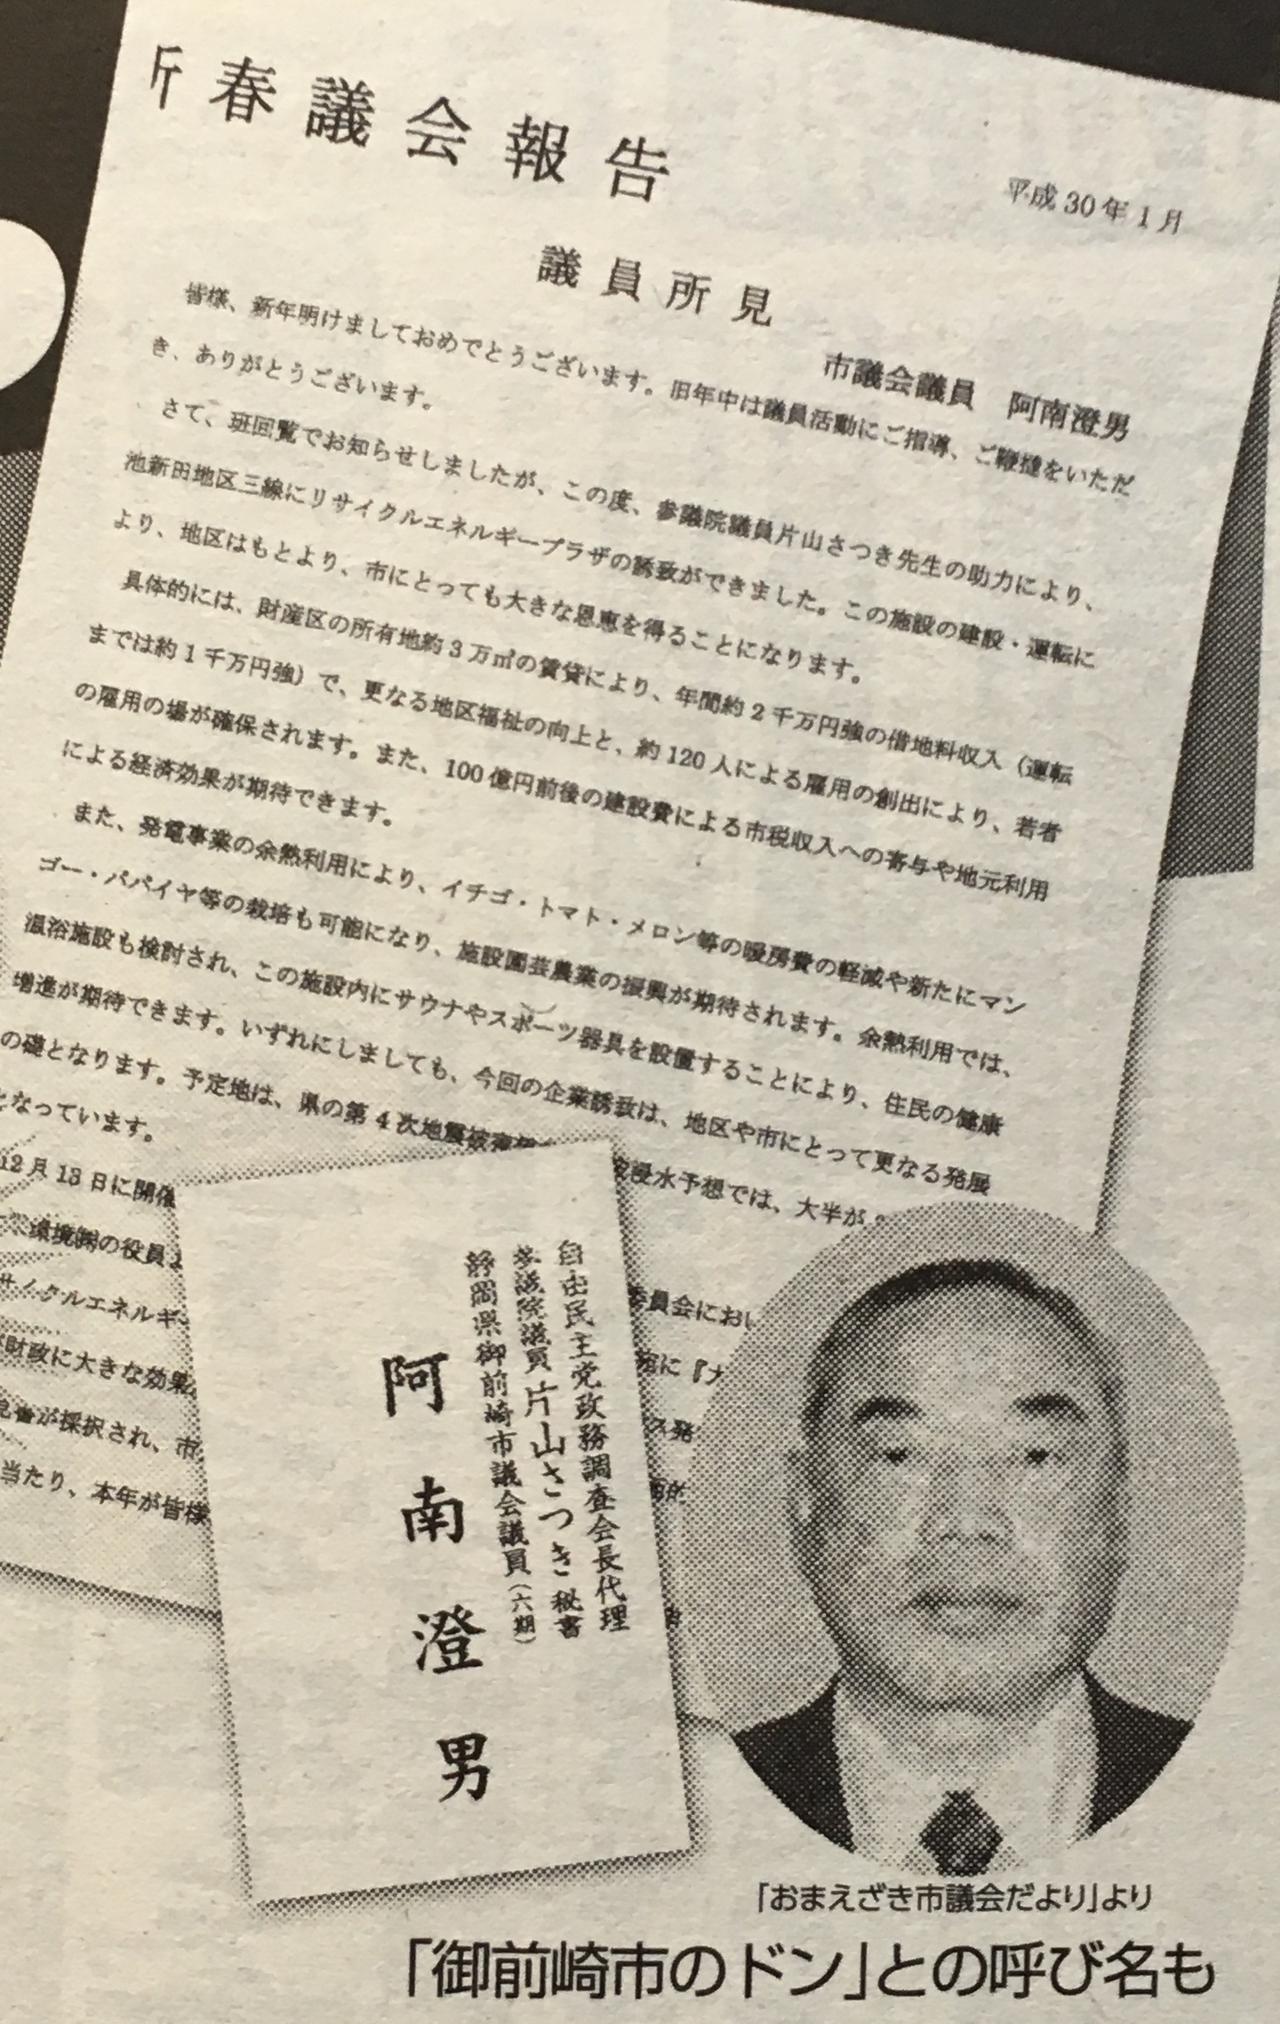 春議会報告
平成30年1月
議員所見
市議会議員 阿南澄男
皆様、新年明けましておめでとうございます。旧年中は議員活動にご指導、ご鞭撻をいただ
き、ありがとうございます。
さて、班回覧でお知らせしましたが、この度、参議院議員片山さつき先生の助力により、
池新田地区三線にリサイクルエネルギープラザの誘致ができました。この施設の建設・運転に
より、地区はもとより、市にとっても大きな恩恵を得ることになります。
具体的には、財産区の所有地約3万㎡の賃貸により、年間約2千万円強の借地料収入（運転
までは約1千万円強）で、更なる地区福祉の向上と、約120人による雇用の創出により、若者
の雇用の場が確保されます。また、100億円前後の建設費による市税収入への寄与や地元利用
による経済効果が期待できます。
また、発電事業の余熱利用により、イチゴ・トマト・メロン等の暖房費の軽減や新たにマン
ゴー・パパイヤ等の栽培も可能になり、施設園芸農業の振興が期待されます。余熱利用では、
温浴施設も検討され、この施設内にサウナやスポーツ器具を設置することにより、住民の健康
増進が期待できます。いずれにしましても、今回の企業誘致は、地区や市にとって更なる発展
の礎となります。予定地は、県の第4次地震被害 浸水予想では、大半が
となっています。
12月13日に開催 委員会におい
環境㈱の役員 に『
サイクルエネルギ ス発
財政に大きな効果
見書が採択され、市
当たり、本年が皆様
自由民主党政務調査会長代理
参議院議員片山さつき秘書
静岡県御前崎市議会議員（六期）
阿南澄男
「おまえざき市議会だより」より
「御前崎市のドン」との呼び名も